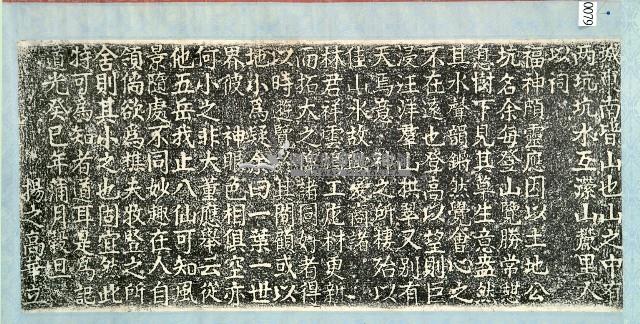 0079
南皆山也山之中有
兩坑坑水互瀠山麓里人
以祠
福神頗靈應因以土地公
坑名余每登山覽勝常憩
息樹下見其草生意盎然
其水聲韻鏘然覺會心之
不在遠也登高以望則巨
浸汪洋羣山拱擊又別有
天焉意神之所棲殆以
佳山水故愛尚者
林君祥雲工庀材更新
而拓大之諸同好者得
以時遊覽其間顧或以
地小為疑余曰一華一世
界彼神色相俱空亦
何小之非大董應舉云從
他五岳我止八仙可知風
景隨處不同妙趣在人自
領倘欲為樵夫牧豎之所
舍則其小之也固宜然此
特可為知者道耳是為記
道光癸巳年蒲月穀旦 楊之高華立